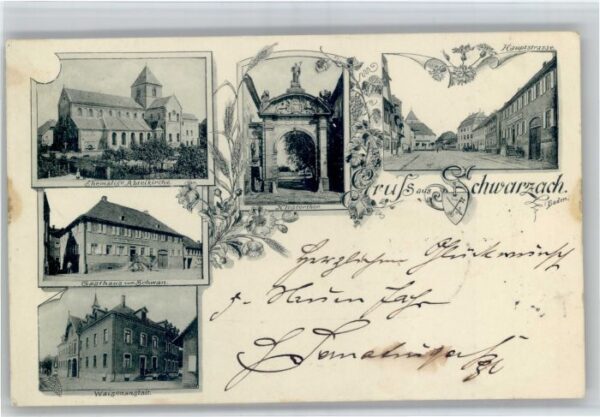 Hauptstrasse.
Ehemalige Abteikirche
Klosterthor
Gruss aus Schwarzach.
in Baden.
Gasthaus zum Schwan.
Waisenanstalt.
Herzlichen Glückwunsch
z. Neuen Jahr